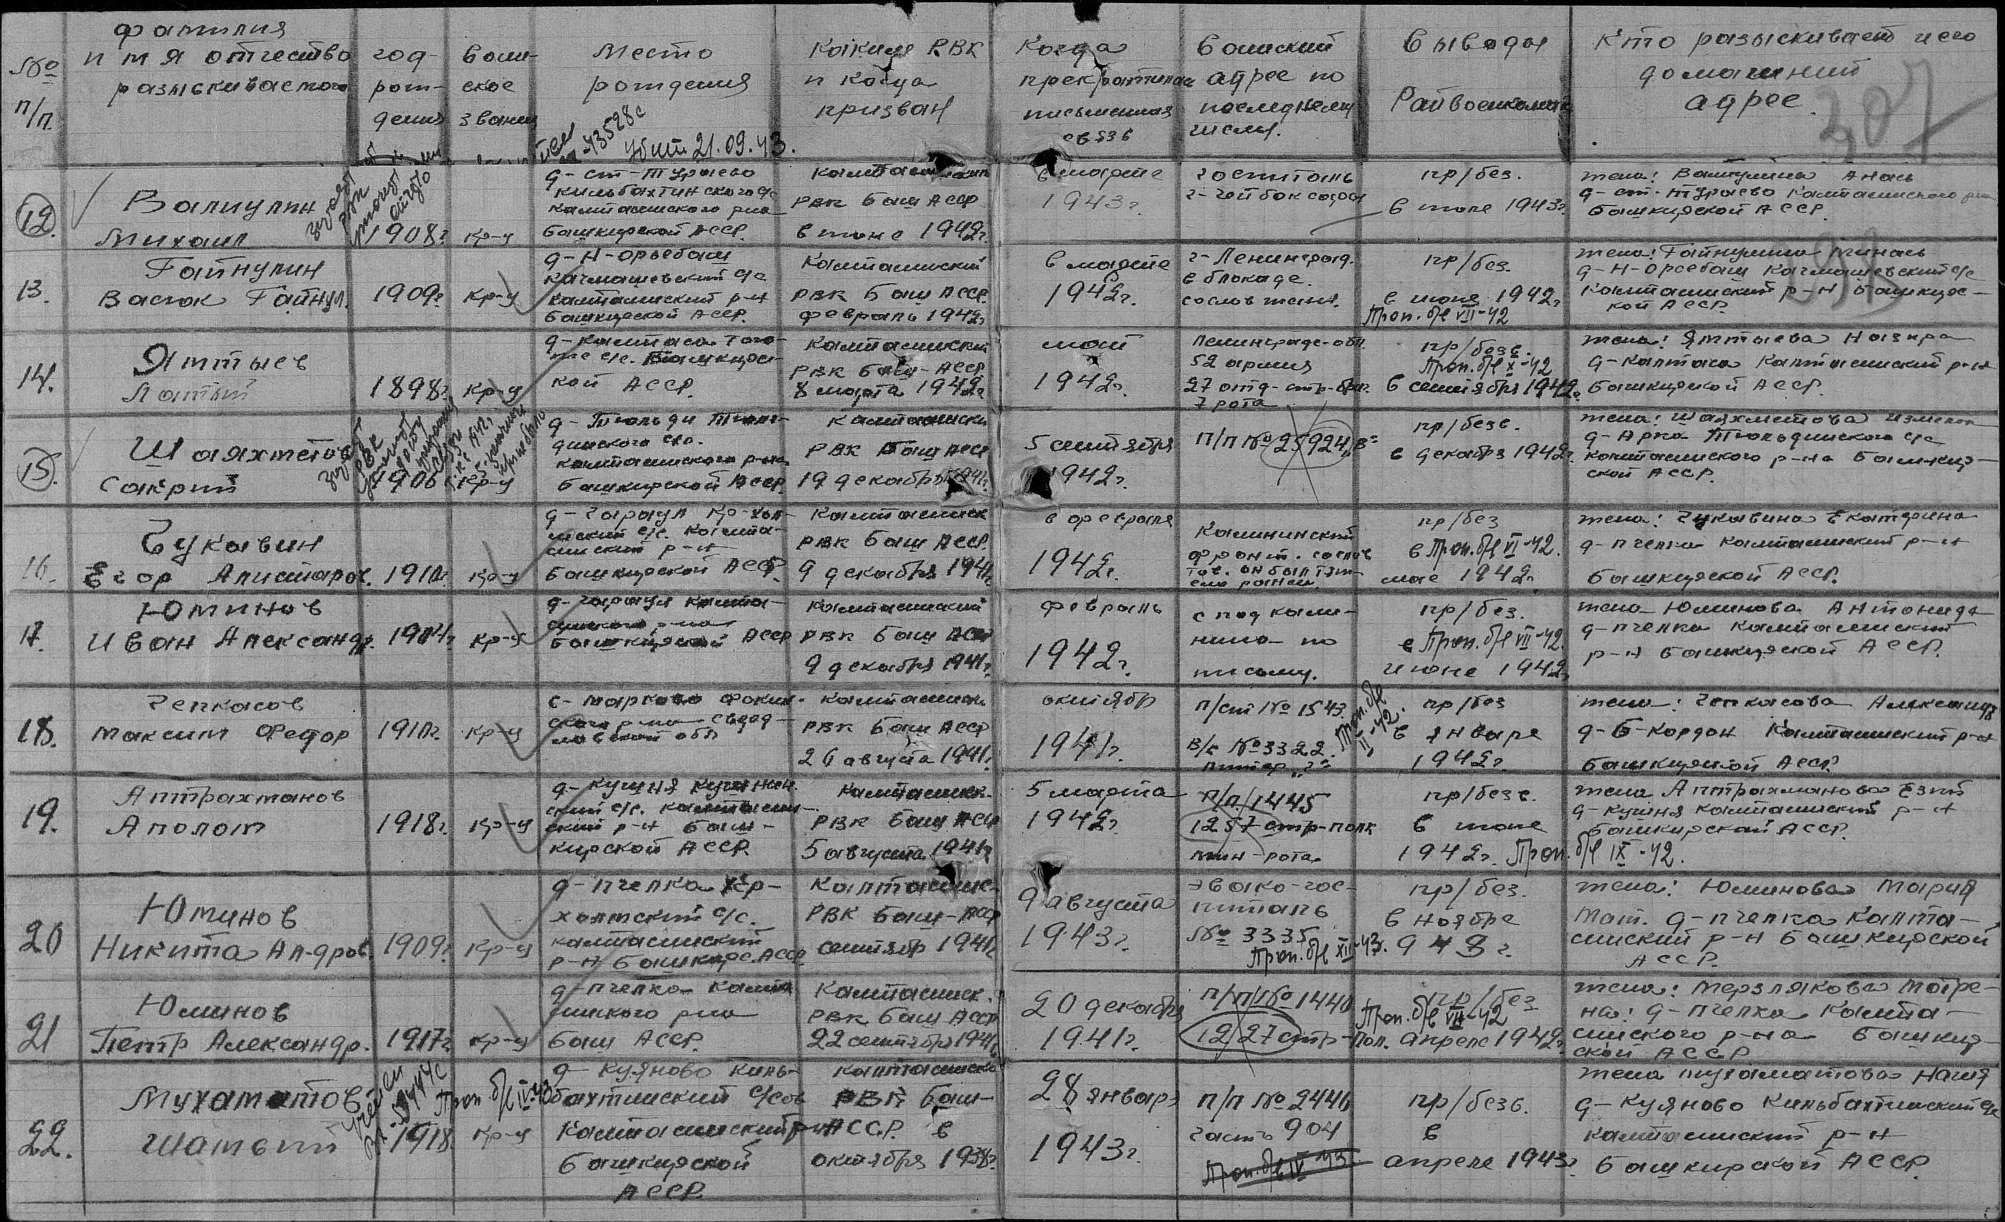 № п/п.
фамилия имя отчество разыскиваемого
год рождения
воинское звание
Место рождения
Каким РВК и когда призван
Когда прекратилась письменная связь
Воинский адрес по последнему числу.
Выводы Райвоенкомата
Кто разыскивает и его домашний адрес
307
13528с
убит 21.09.43.
12
Валиулин
Михаил
1908г
кр-ц
д-ст-Тураево
Кильбахтинского с/с
Калтасинского р-на
Башкирской АССР.
Калтасинским
РВК Баш АССР
в июне 1942г.
в марте
1943г.
госпиталь
пр/без.
в июле 1943г.
жена: Валиулина
д-ст-Тураево Калтасинского
Башкирской АССР.
13.
Гайнулин
Васюк Гайнул.
1909г.
кр-ц
д-Н-Орьебаш
Качмашевский с/с
Калтасинский р-н
Башкирской АССР.
Калтасинский
РВК Баш АССР.
февраль 1942г.
в марте
1942г.
г-Ленинград.
в блокаде.
со слов жены.
пр/без.
в июне 1942г
Проп. б/в VII-42
жена: Гайнулина
д-Н-Орьебаш Качмашевский с/с
Калтасинский р-н Башкирс-
кой АССР.
14.
Яттыев
Латып
1898г.
кр-ц
кой АССР.
Калтасинский
РВК Баш-АССР
8 марта 1942г.
май
1942г.
Ленинградс-обл.
52 армия
27 отд-стр-бр.
7 рота
пр/безв.
Проп. б/в X-42
в сентября 1942г.
жена: Яттыева Назира
д-Калтаса Калтасинский р-н
Башкирской АССР.
15.
Шаяхметов
Сакрий
1906
кр-ц
динского с/с.
Калтасинского р-на
Башкирской АССР.
Калтасински
РВК Баш АССР
19 декабря 1941г.
5 сентября
1942г.
п/п № 25924
пр/безв.
в декабря 1942г.
жена: Шаяхметова
Калтасинского р-на Башкир-
ской АССР.
16.
Чукавин
Егор Алистаров.
1910г.
кр-ц
д-Чараул Кр-Хол-
мский с/с. Калта-
синский р-н
Башкирской АССР.
Калтасинск
РВК Баш АССР.
9 декабря 1941г.
в февраля
1942г.
Калининский
фронт. со слов
тов. он был тяж-
ело ранен
пр/без
в Проп. б/в VI-42.
мае 1942г.
жена: Чукавина Екатерина
д-Пчелка Калтасинский р-н
Башкирской АССР.
17.
Юминов
Иван Александр.
1904г.
кр-ц
д-Чараул Калта-
синского р-на
Башкирской АССР
Калтасинский
РВК Баш АССР
9 декабря 1941г.
февраль
1942г.
с под Кали-
нина по
письму.
пр/без.
в Проп. б/в VII-42.
июне 1942г.
жена Юминова Антонида
д-Пчелка Калтасинский
р-н Башкирской АССР.
18.
Чепкасов
Максим Федор
1910г.
кр-ц
с-Марково
ского р-на Сверд-
ловской обл
Калтасински
РВК Баш АССР
26 августа 1941г.
октябр
1941г.
п/ст № 1543.
в/ч № 3322.
Проп. б/в II-42.
пр/без
в январе
1942г.
жена: Чепкасова Александр
д-Б-Кордон Калтасинский р-н
Башкирской АССР.
19.
Аптрахманов
Аполот
1918г.
кр-ц
ский с/с. Калтасин-
ский р-н Баш-
кирской АССР.
Калтасинск.
РВК Баш АССР
5 августа 1941г.
5 марта
1942г.
п/п/1445
1257 стр-полк
мин-рота.
пр/безв.
в июле
1942г.
Проп. б/в IX-42.
жена Аптрахманова
д-Кушня Калтасинский р-н
Башкирской АССР.
20
Юминов
Никита Ал-дров.
1909г.
кр-ц
д-Пчелка Кр-
холмский с/с.
Калтасинский
р-н Башкирс. АССР
Калтасинск-
РВК Баш-АССР
сентябр 1941г.
9 августа
1943г.
эвако-гос-
питаль
№ 3335
Проп. б/в XII-43.
пр/без.
в ноябре
943г.
жена: Юминова Мария
Мат. д-Пчелка Калта-
синский р-н Башкирской
АССР.
21
Юминов
Петр Александр.
1917г.
кр-ц
д-Пчелка Калта
синского р-на
Баш АССР.
Калтасинск.
РВК Баш АССР
22 сентября 1941г.
20 декабря
1941г.
п/п/№ 1440
1227 стр-пол.
пр/без
Проп. б/в VII-42
апреле 1942г.
жена: Мерзлякова Матре-
на: д-Пчелка Калта-
синского р-на Башкир-
ской АССР
22.
Мухаматов
Шатый
1918
кр-ц
Проп. б/в IV-43
д-Куяново Киль-
бахтинский с/сов
Калтасинский р-н
Башкирской
АССР.
Калтасинско
РВК Баш-
АССР. в
октября 1938г.
28 январ
1943г.
п/п № 2446
часть 904
Проп. б/в IV-43.
пр/безв.
в
апреле 1943г.
жена Мухаматова
д-Куяново Кильбахтинский с/с
Калтасинский р-н
Башкирской АССР.